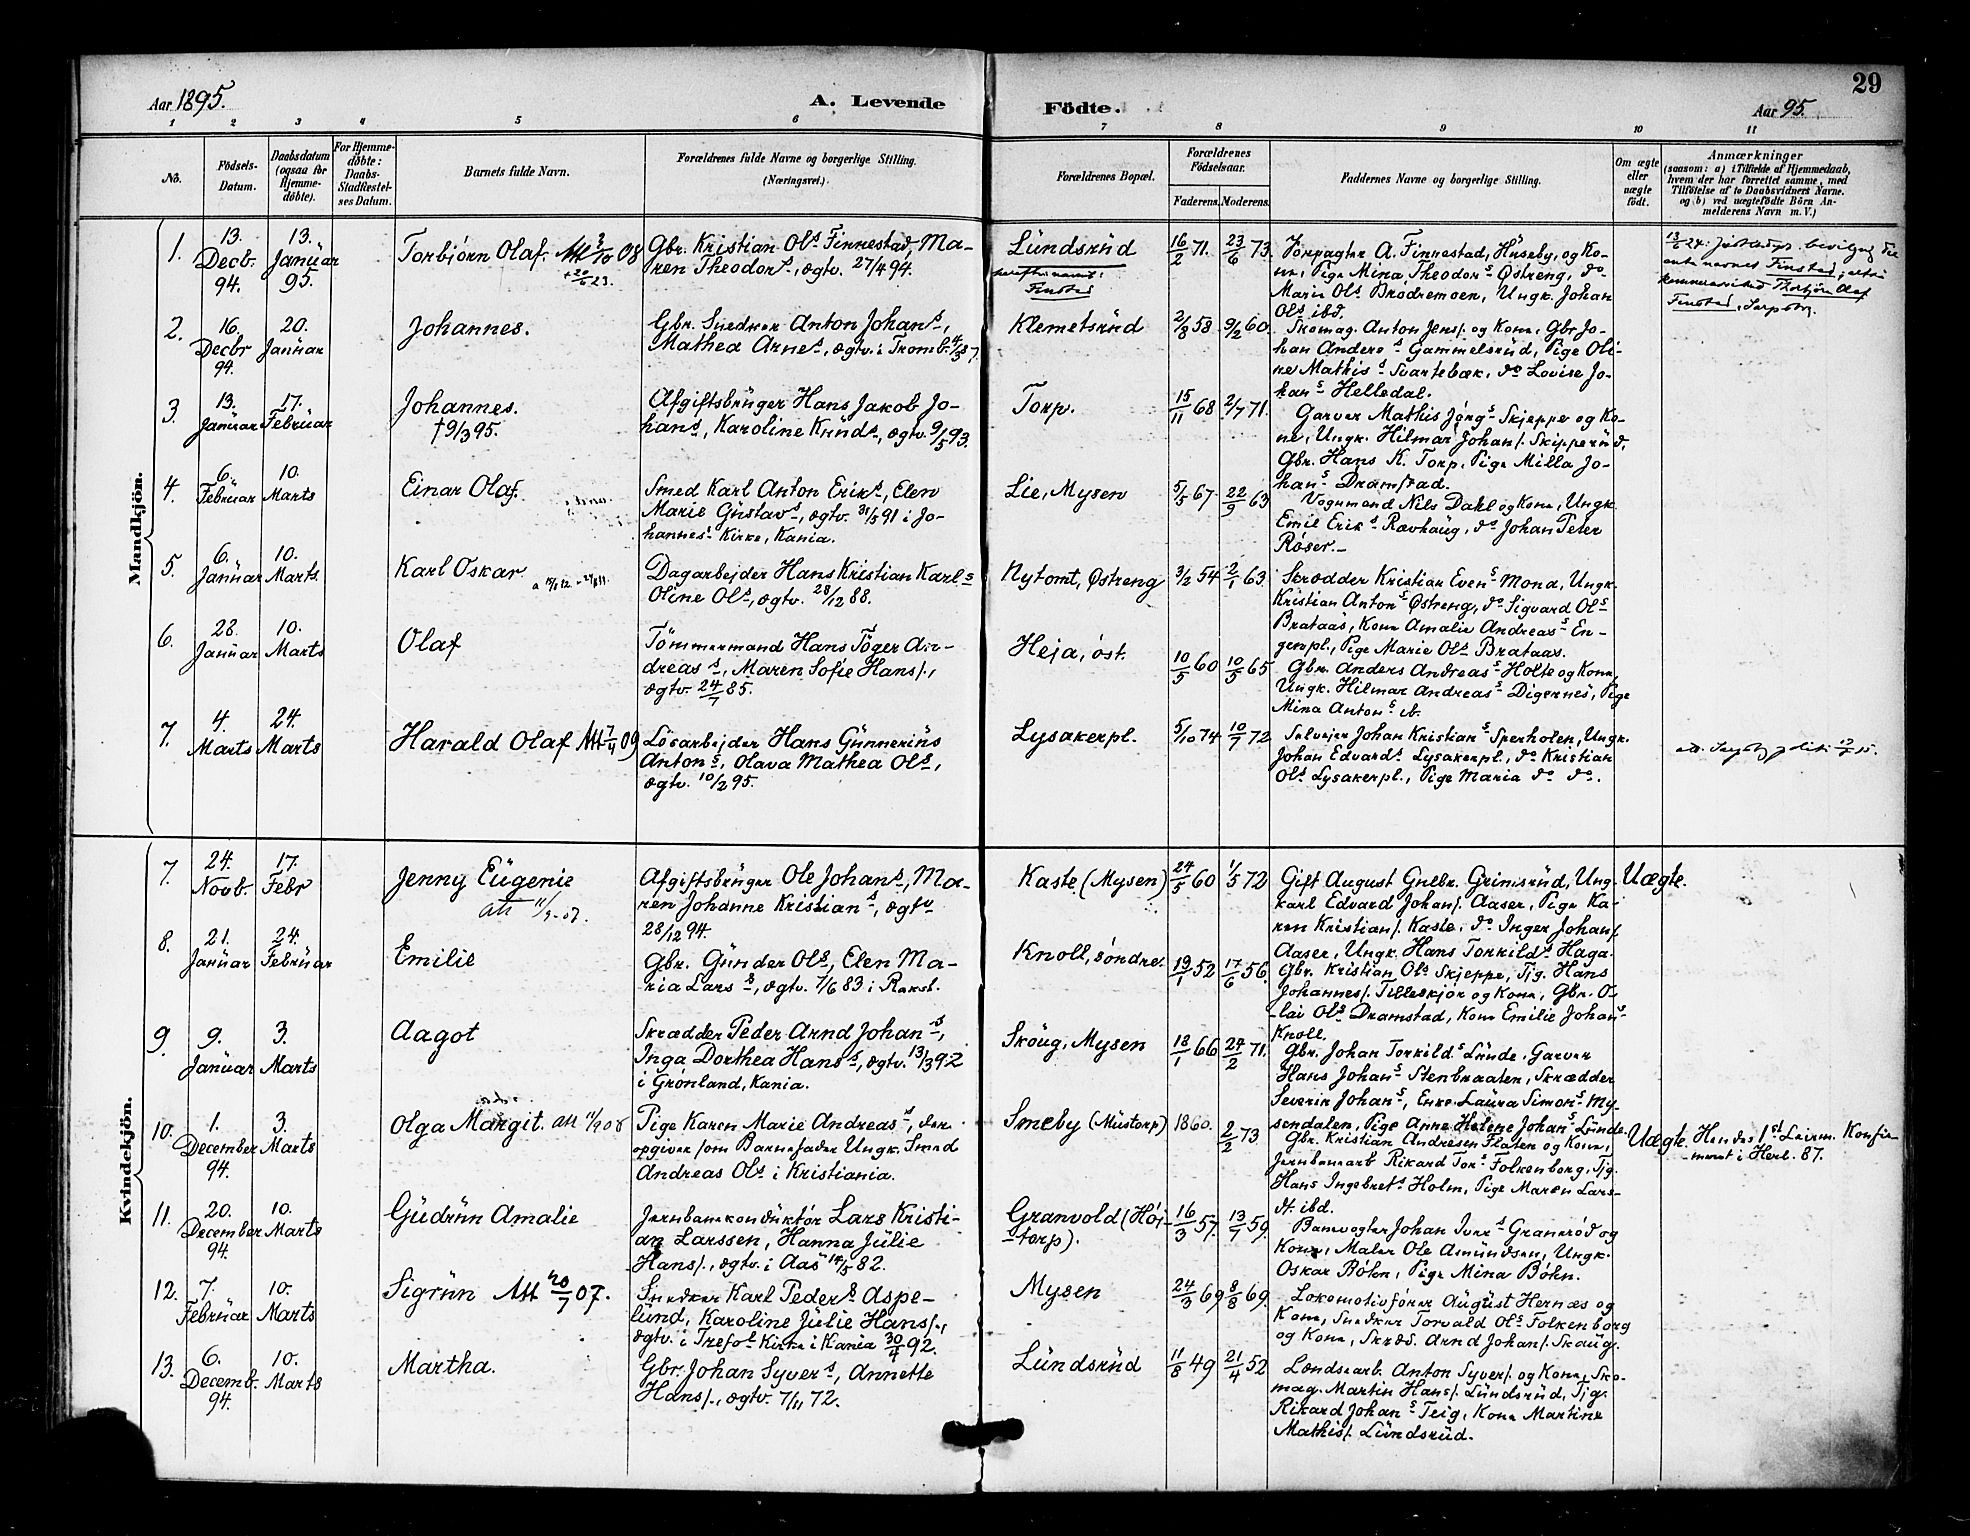 29
Aar 1895.
A. Levende
Födte.
Aar 95.
1 2 3 4 5 6 7 8 9 10 11
No.
Födsels-
Datum.
Daabsdatum
(ogsaa for
Hjemme-
døbte).
For Hjemme-
døbte:
Daabs-
Stadfæstel-
ses Datum.
Barnets fulde Navn.
Forældrenes fulde Navne og borgerlige Stilling.
(Næringsvei.)
Forældrenes Bopæl.
Forældrenes
Födselsaar.
Faderens. Moderens.
Faddernes Navne og borgerlige Stilling.
Om ægte
eller
uægte
født.
Anmærkninger
(saasom: a) i Tilfælde af Hjemmedaab,
hvem der har forrettet samme, med
Tilföielse af to Daabsvidners Navne.
og b) ved uægtefödte Börn An-
melderens Navn m. V.)
Mandkjön.
1.
13.
Decb.
94.
13.
Januar
95.
Torbjörn Olaf. Att 3/10 08
+ 20/6 23.
Gbr. Kristian Ols Finnestad, Ma-
ren Theodors, ægtv. 27/4 94.
Lundsrud
Finstad
16/2 71. 23/6 73.
Forpagter A. Finnestad, Huseby, og Ko-
ne, Pige Mina Theodors Østreng, do
Marie Ols Brödremoen, Ungk. Johan
Ols ibd.
Finstad
Thorbjörn Olaf
Finstad, Sarpsborg.
2.
16.
Decbr
94.
20.
Januar
Johannes.
Gbr. Snedker Anton Johans,
Mathea Arnes, ægtv. i Tromb. 4/3 87.
Klemetsrud
2/8 58 9/2 60.
Skomag. Anton Jens/. og Kone, Gbr Jo-
han Anders Gammelsrud, Pige Oli-
ne Mathis Svartebæk, do Lovise Jo-
hans Helledal.
3.
13.
Januar
17.
Februar
Johannes.
† 9/3 95.
Afgiftsbruger Hans Jakob Jo-
hans, Karoline Knuds, ægtv. 9/5 93.
Torp.
15/11 68 2/7 71.
Garver Mathis Jörgs Skjeppe og Ko-
ne, Ungk. Hilmar Johan/. Skipperud,
Gbr. Hans K. Torp, Pige Milla Jo-
hans Dramstad.
4.
6.
Februar
10.
Marts
Einar Olaf.
Smed Karl Anton Eriks, Elen
Marie Gustavs, ægtv. 31/5 91 i Jo-
hannes' Kirke, Kania.
Lie, Mysen
5/5 67. 22/9 63
Vognmand Nils Dahl og Kone, Ungk.
Emil Eriks Ravhaug, do Johan Peter
Röser.
5.
6.
Januar
10.
Marts.
Karl Oskar
Dagarbejder Hans Kristian Karls
Oline Ols, ægtv. 28/12 88.
Nytomt, Østreng
3/2 54 2/1 63.
Skrædder Kristian Evens Mona, Ungk.
Kristian Antons Østreng, do Sigvard Ols
Brataas, Kone Amalie Andreas En-
genpl., Pige Marie Ols Brataas.
6.
28.
Januar
10.
Marts
Olaf
Tömmermand Hans Töger An-
dreas, Maren Sofie Hans/.,
ægtv. 24/7 85.
Heja, öst.
10/5 60 10/5 65
Gbr. Anders Andreas Holte og Kone,
Ungk. Hilmar Andreas Digernes, Pige
Mina Antons ib.
7.
4.
Marts
24.
Marts
Harald Olaf Att 7/4 09
Lösarbejder Hans Gunnerius
Antons, Olava Mathea Ols,
ægtv. 10/2 95.
Lysakerpl.
5/10 74 10/7 72
Selvejer Johan Kristians Sperholen, Ungk.
Johan Edvards Lysakerpl., do Kristian
Ols Lysakerpl., Pige Maria do do.
Kvindekjön.
7.
24.
Novb.
17.
Febr
Jenny Eugenie
Att 11/9-07.
Afgiftsbruger Ole Johans, Ma-
ren Johanne Kristians, ægtv
28/12 94.
Kaste (Mysen)
24/5 60 1/5 72
Gift August Gulbr. Grimsrud, Ung-
karl Edvard Johan/. Aaser, Pige Ka-
ren Kristian/. Kaste, do Inger Johan/.
Aaser, Ungk. Hans Torkilds Haga.
Uægte.
8.
21.
Januar
24.
Februar
Emilie
Gbr. Gunder Ols, Elen Ma-
ria Lars, ægtv. 7/6 83 i Rakst.
Knoll, söndre.
19/1 52 17/6 56.
Gbr. Kristian Ols Skjeppe, Tjg. Hans
Johannes/. Tilleskjör og Kone, Gbr. O-
lai Ols Dramstad, Kone Emilie Johans
Knoll.
9.
9.
Januar
3.
Marts
Aagot
Skrædder Peder Arnd Johans,
Inga Dorthea Hans, ægtv. 13/3 92
i Grönland, Kania.
Skoug, Mysen
18/1 66 24/2 71.
Gbr. Johan Torkilds Lunde, Garver
Hans Johans Stenbraaten, Skrædder
Severin Johans, Enke Laura Simons My-
sendalen, Pige Anne Helene Johans Lunde.
10.
1.
December
94.
3.
Marts
Olga Margit. Att 11/9 08
Pige Karen Marie Andreas, der
opgiver som Barnefader Ungk. Smed
Andreas Ols i Kristiania.
Smeby (Mustorp)
1860. 2/2 73
Gbr. Kristian Andresen Flaten og Kone,
Jernbanearb Rikard Tors Folkenborg, Tjg.
Hans Ingebrets Holm, Pige Maren Lars-
dt. ibd.
Uægte.
Hendes 1st Leierm. Konfir-
meret i Herl. 87.
11.
20.
December
94.
10.
Marts
Gudrun Amalie
Jernbanekonduktör Lars Kristi-
an Larssen, Hanna Julie
Hans/., ægtv. i Aas 14/5 82.
Granvold (Höi-
torp).
16/3 57. 13/7 59.
Banevogter Johan Ivers Graneröd og
Kone, Maler Ole Amundsen, Ungk.
Oskar Böhn, Pige Mina Böhn.
12.
7.
Februar
10.
Marts
Sigrun Att 20/7 07.
Snedker Karl Peders Aspe-
lund, Karoline Julie Hans/.,
ægtv. i Trefos Kirke i Kania 30/4 92.
Mysen
24/3 69 8/8 69.
Lokomotivförer August Hernæs og
Kone, Snedker Torvald Ols Folkenborg
og Kone, Skræd. Arnd Johan/. Skaug.
13.
6.
Decemb.
94.
10.
Marts
Martha.
Gbr. Johan Syvers, Annette
Hans/., ægtv. 7/11 72.
Lundsrud
11/8 49 21/4 52
Landearb. Anton Syver/. og Kone, Sko-
mag. Martin Hans/. Lundsrud, Tjg.
Rikard Johans Teig, Kone Martine
Mathis/. Lundsrud.